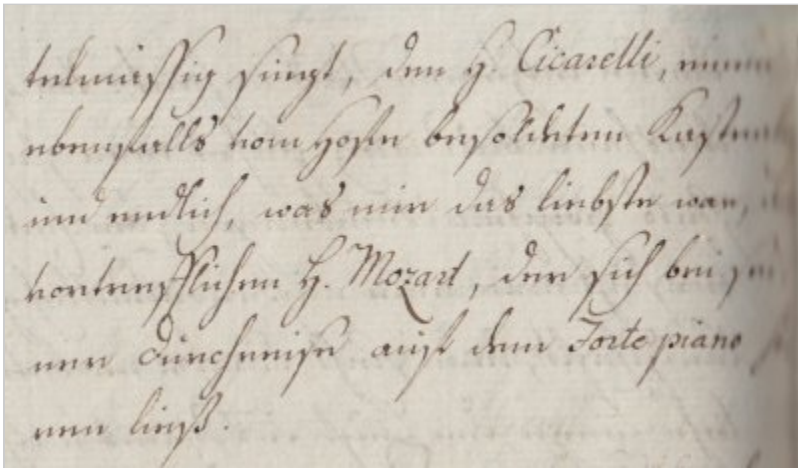 telmässig singt, den H. Cicarelli, einen
ebenfalls vom Hofe besoldeten Kastra
und endlich, was mir das liebste war,
vortrefflichen H. Mozart, der sich bei
ner Durchreise auf dem Fortepiano
ren ließ.